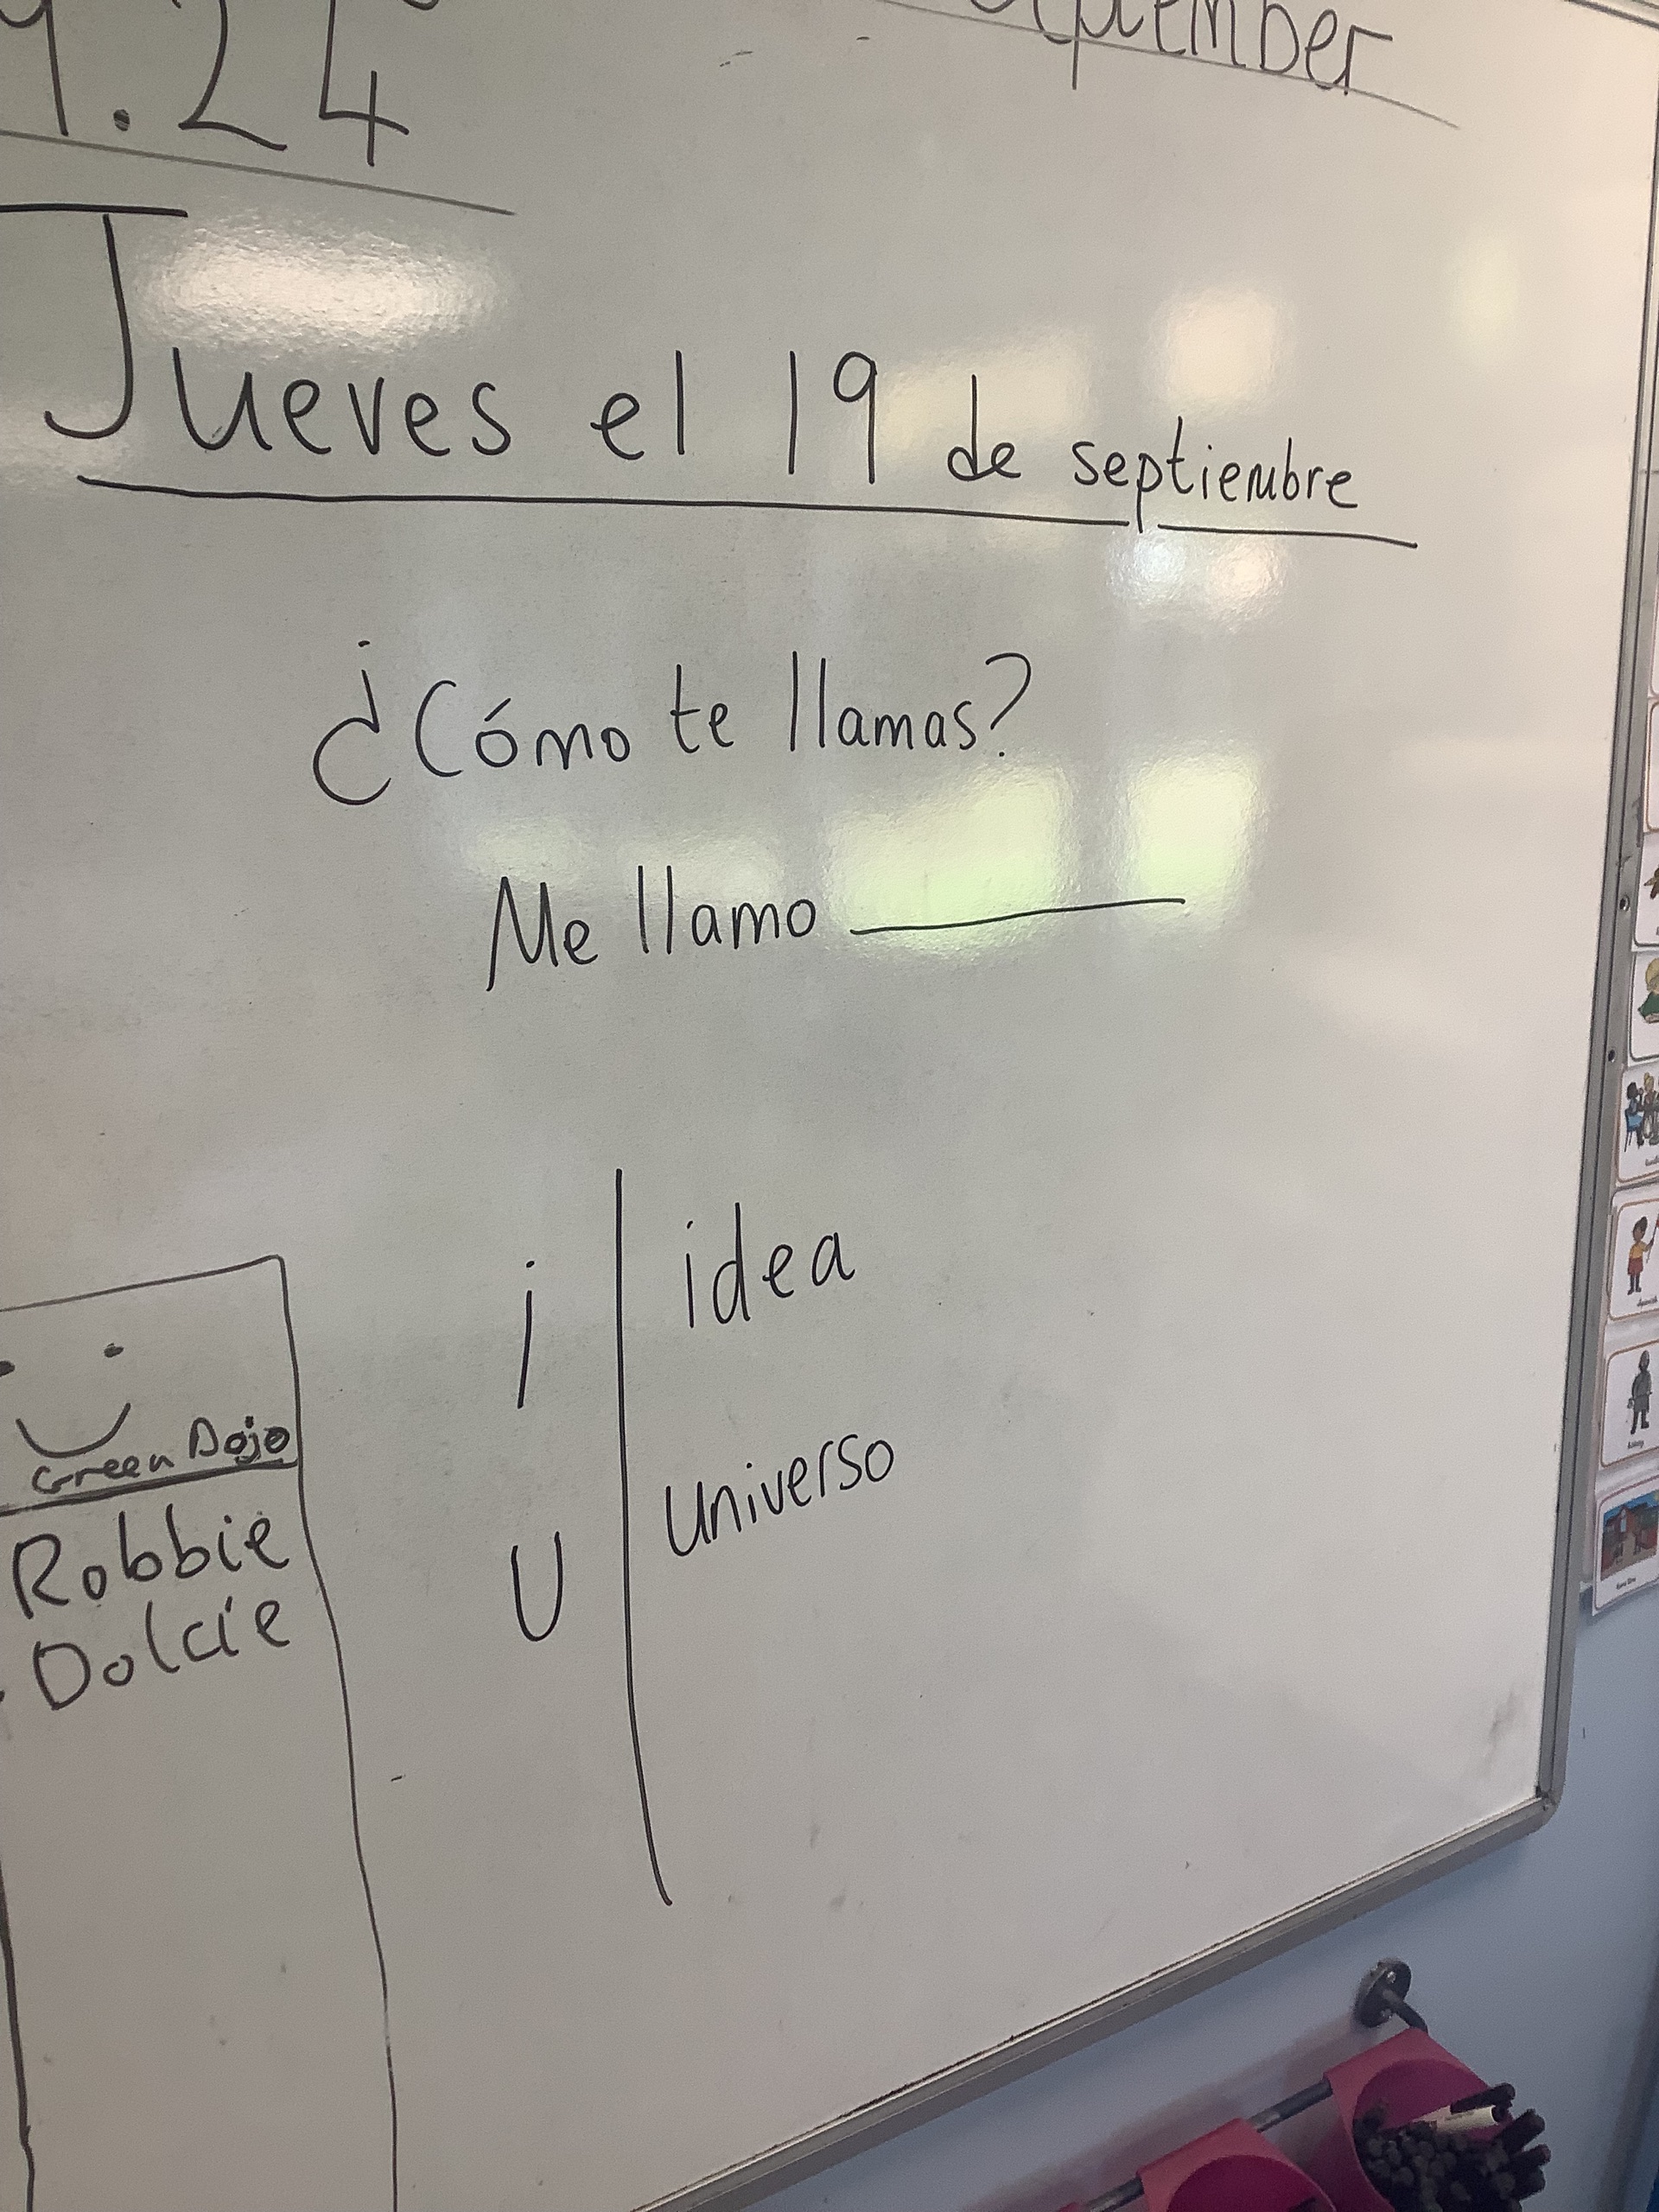 9.24
Jueves el 19 de septiembre
¿Cómo te llamas?
Me llamo
i idea
u universo
Green Dojo
Robbie
Dolcie